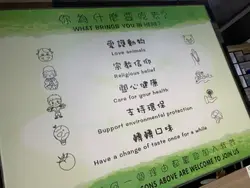 你為什麼當吃素?
WHAT BRINGS YOU IN HERE?
愛護動物
Love animals
宗教信仰
Religious belief
關心健康
Care for your health
支持環保
Support environmental protection
轉轉口味
Have a change of taste once for a while
SONS ABOVE ARE WELCOME TO JOIN US